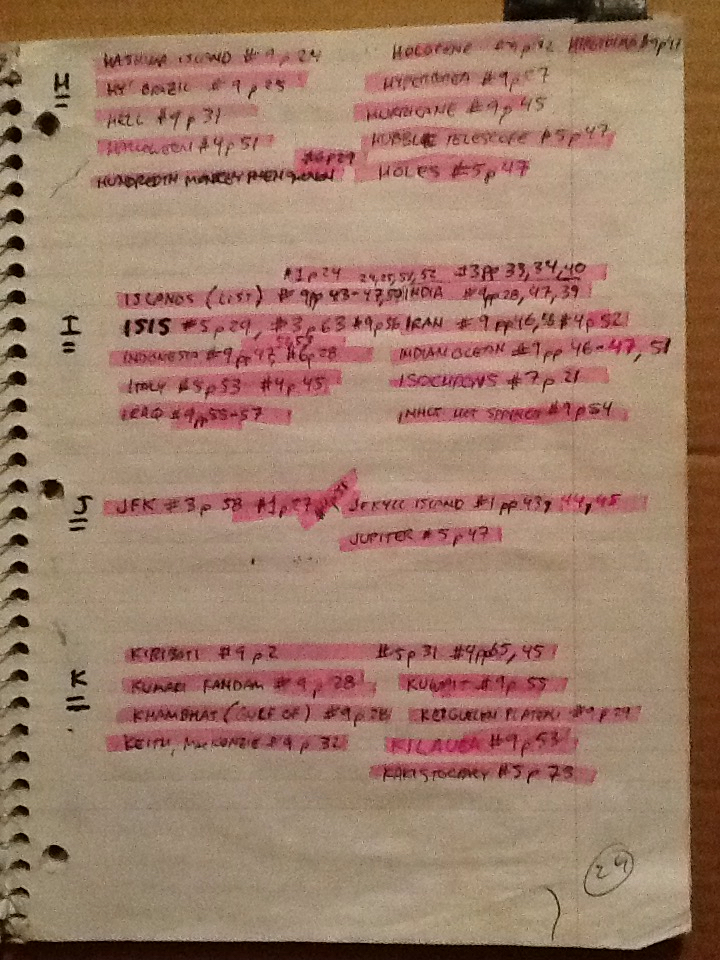 H
HASHIMA ISLAND # 9 p 24
HOLOCENE # 9 p 32 HIROSHIMA # 9 p 41
HY BRAZIL # 9 p 25
HYPERBOREA # 9 p 27
HELL # 9 p 31
HURRICANE # 9 p 45
HALLOWEEN # 4 p 51
HUBBLE TELESCOPE # 5 p 47
#6 p 29
HUNDREDTH MONKEY PHENOMENON
HOLES # 5 p 47
I
#1 p 24 24,25,51,52 #3 pp 33,34,40
ISLANDS (LIST) # 9 pp 43-47,50 INDIA # 9 pp 28, 47, 39
ISIS #5 p 29, #3 p 63 #9 p 56 IRAN # 9 pp 46,56 #4 p 52
INDONESIA # 9 pp 47, #6 p 28
INDIAN OCEAN # 9 pp 46-47, 51
ITALY # 5 p 53 #4 p 45
ISOCHRONS # 7 p 21
IRAQ # 9 pp 55-57
HOT SPRINGS # 9 p 54
J
JFK # 3 p 58 #1 p 27
JEKYLL ISLAND #1 pp 43, 44, 45
JUPITER # 5 p 47
K
KIRIBATI # 9 p 2
#5 p 31 #4 pp 65, 45
KUMARI KANDAM # 9 p 28
KUWAIT # 9 p 55
KHAMBHAT (GULF OF) # 9 p 28
KERGUELEN PLATEAU # 9 p 29
KEITH, MACKENZIE # 9 p 32
KILAUEA # 9 p 53
KAKISTOCRACY # 5 p 73
29